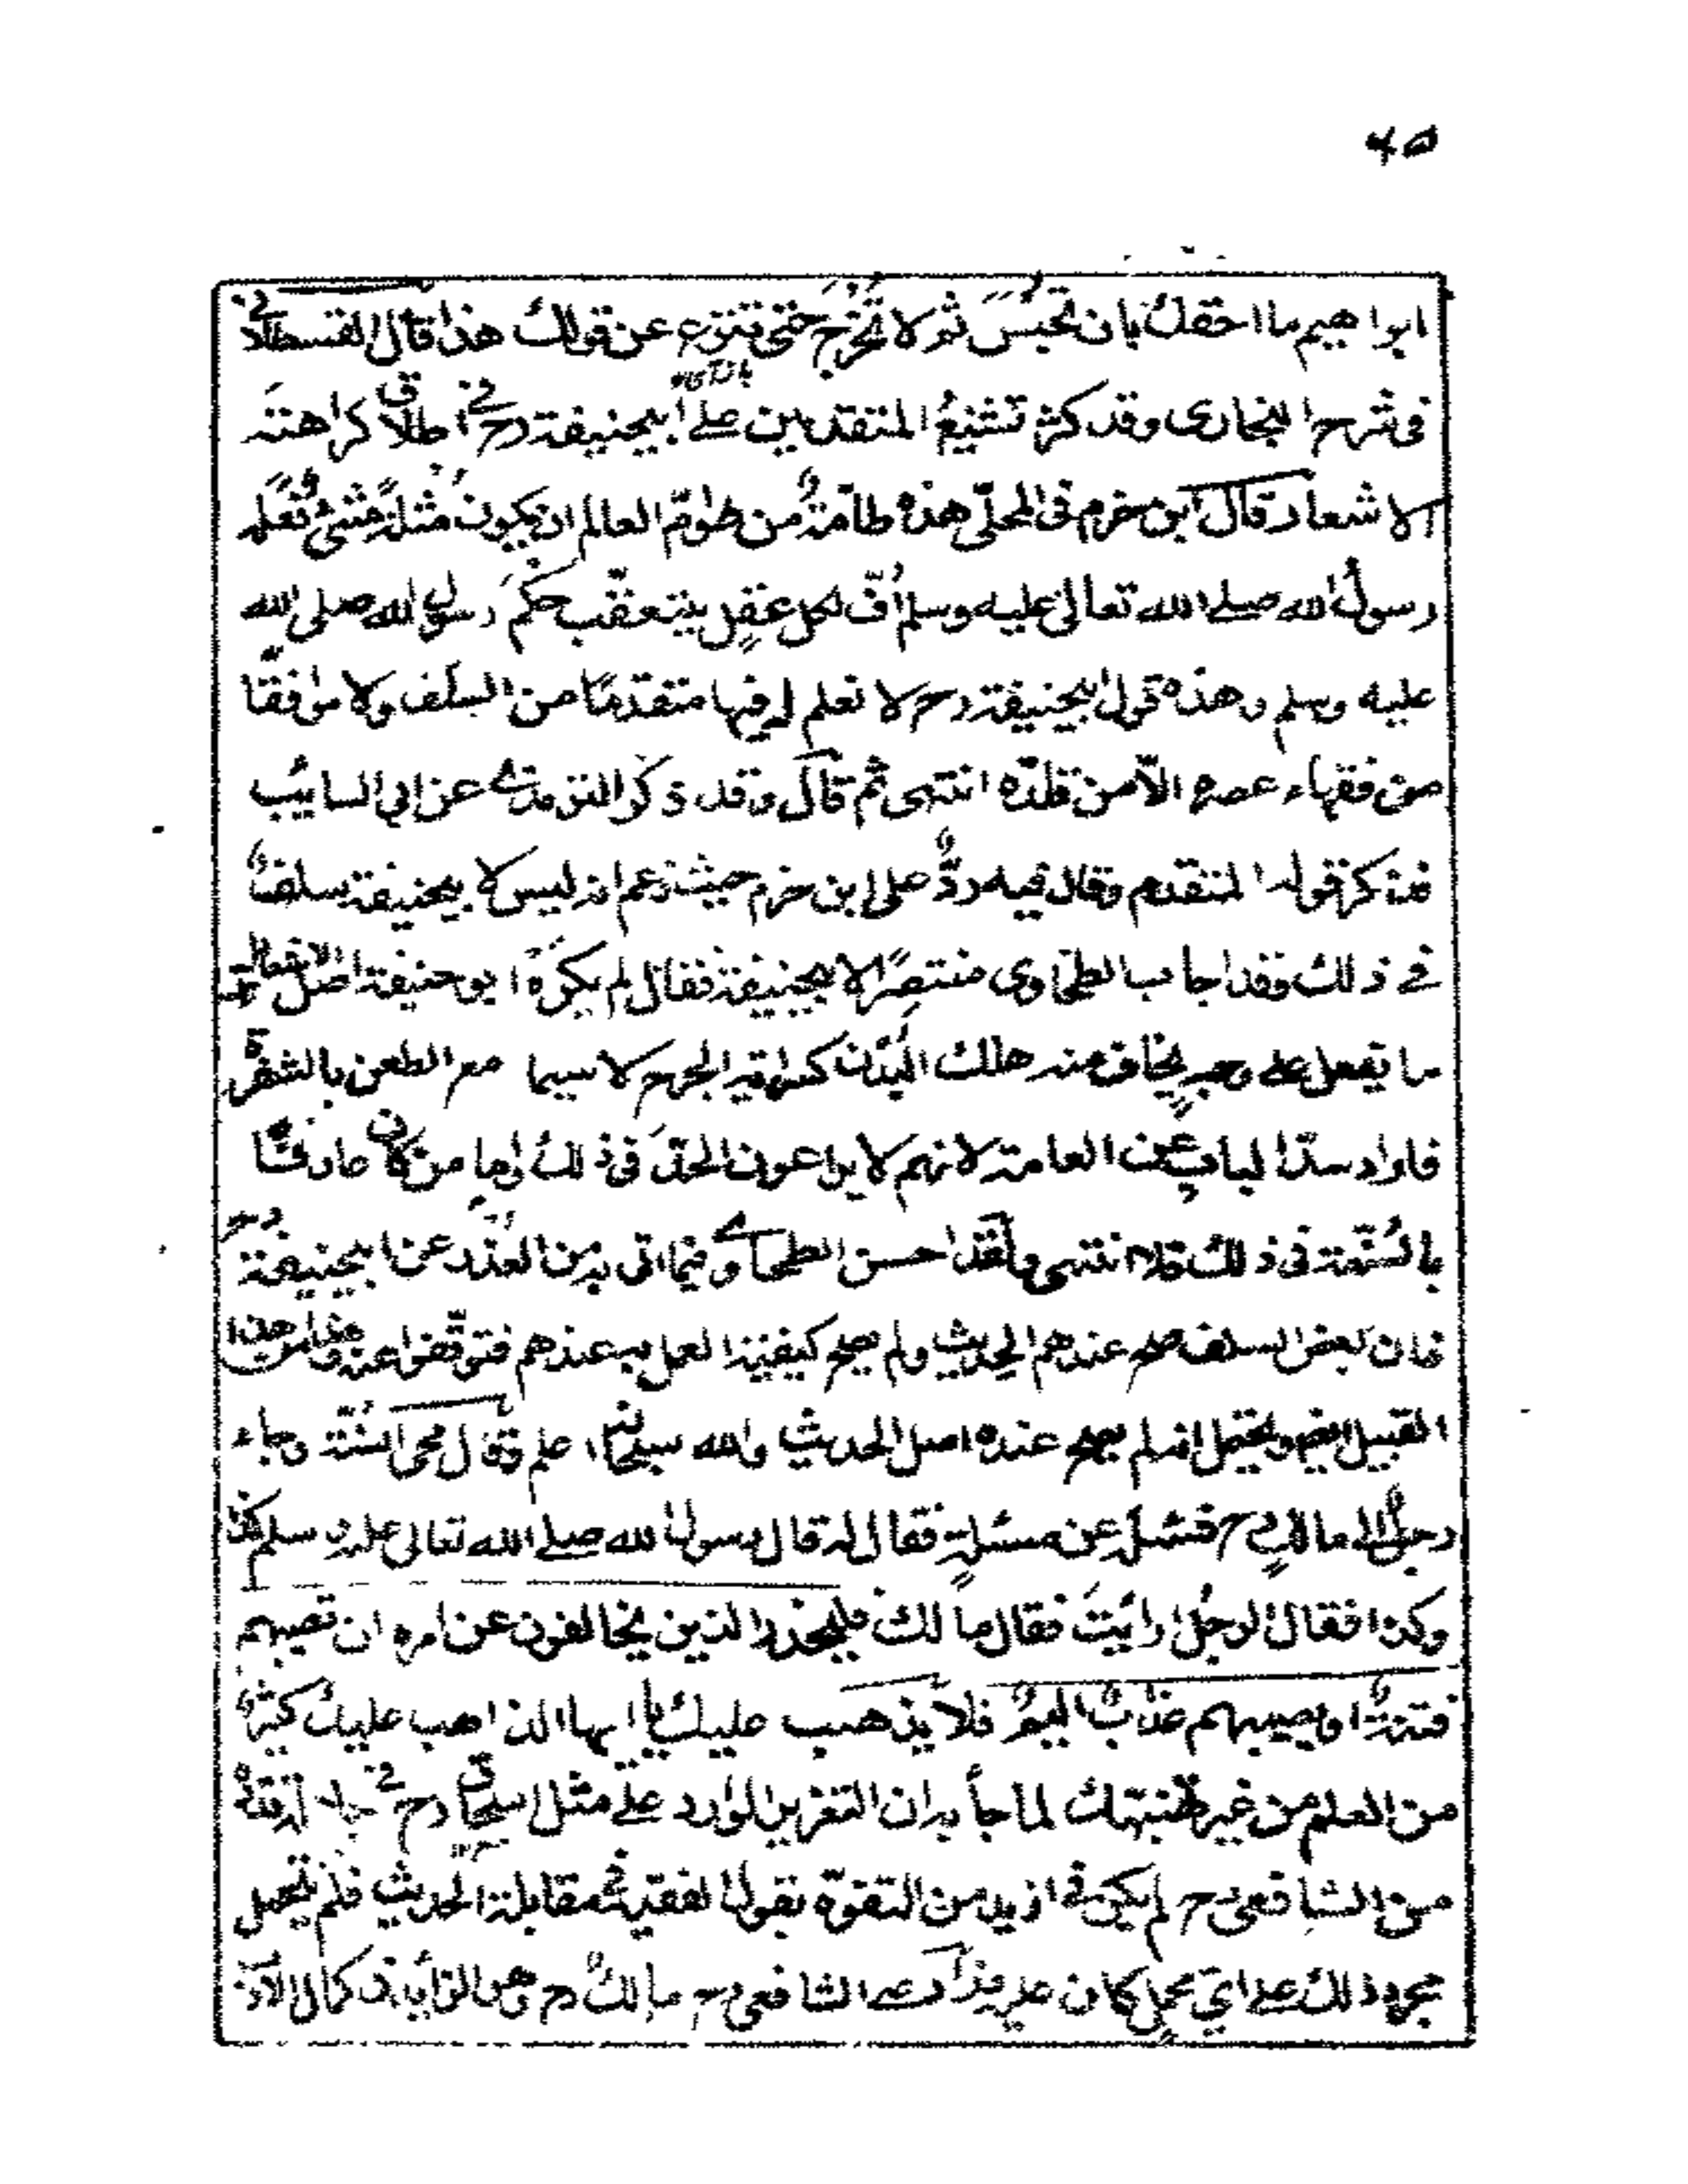 ٤٥
ابراهيم ما احقك بان تحبس ثم لا تخرج حتى تنزع عن قولك هذا قال القسطلانى
فى شرح البخارى وقد كثر تشنيع المتقدمين على ابيحنيفة رح فى اطلاق كراهته
الاشعار قال ابن حزم فى المحلّى هذه طامّة من طوامّ العالم ان يكون مثلة شئ فعله
رسول الله صلى الله تعالى عليه وسلم اُفّ لكل عقل يتعقّب حكم رسول الله صلى الله
عليه وسلم وهذه قول ابيحنيفة رح لا نعلم له فيها متقدمًا من السلف ولا موافقًا
من فقهاء عصره الّا من قلّده انتهى ثم قال وقد ذكر الترمذى عن ابى السايب
فذكر قوله المتقدم وقال فيه ردٌّ على ابن حزم حيث زعم انه ليس لابيحنيفة سلفٌ
فى ذلك وقد اجاب الطحاوى منتصرًا لابيحنيفة فقال لم يكره ابو حنيفة اصل الاشعار
ما يفعل على وجهٍ يخاف منه هلاك البُدن كسراية الجرح لاسيما مع الطعن بالشفرة
فاراد سدّ الباب عن العامة لانهم لا يراعون الحدّ فى ذلك واما من كان عارفًا
بالسُّنّة فى ذلك فلا انتهى ولقد احسن الطحاوى فيما اتى به من العُذر عن ابيحنيفة رح
فان بعض السلف صح عندهم الحديث ولم يصح كيفية العمل به عندهم فتوقّفوا عنه وهذا من هذا
القبيل ايضا ويحتمل انه لم يصح عنده اصل الحديث والله سبحانه اعلم وقال محى السُّنّة وجاء
رجلٌ الى مالك رح فسئله عن مسئلةٍ فقال له قال رسول الله صلى الله تعالى عليه وسلم كذا
وكذا فقال الرجل ارأيتَ فقال مالك فليحذر الذين يخالفون عن امره ان تصيبهم
فتنةٌ او يصيبهم عذابٌ اليمٌ فلا يذهب عليك يا ايها الذاهب عليك كثيرٌ
من العلم من غير تنبيهك لما جأ به ان التعزير الوارد على مثل اسحاق رح فى
من الشافعى رح لم يكن فى ازيد من التفوّه بقول الفقيه فى مقابلة الحديث فلم يحمل
مجرد ذلك على اىّ محملٍ كان عليه الشافعى رح مالكٌ رح